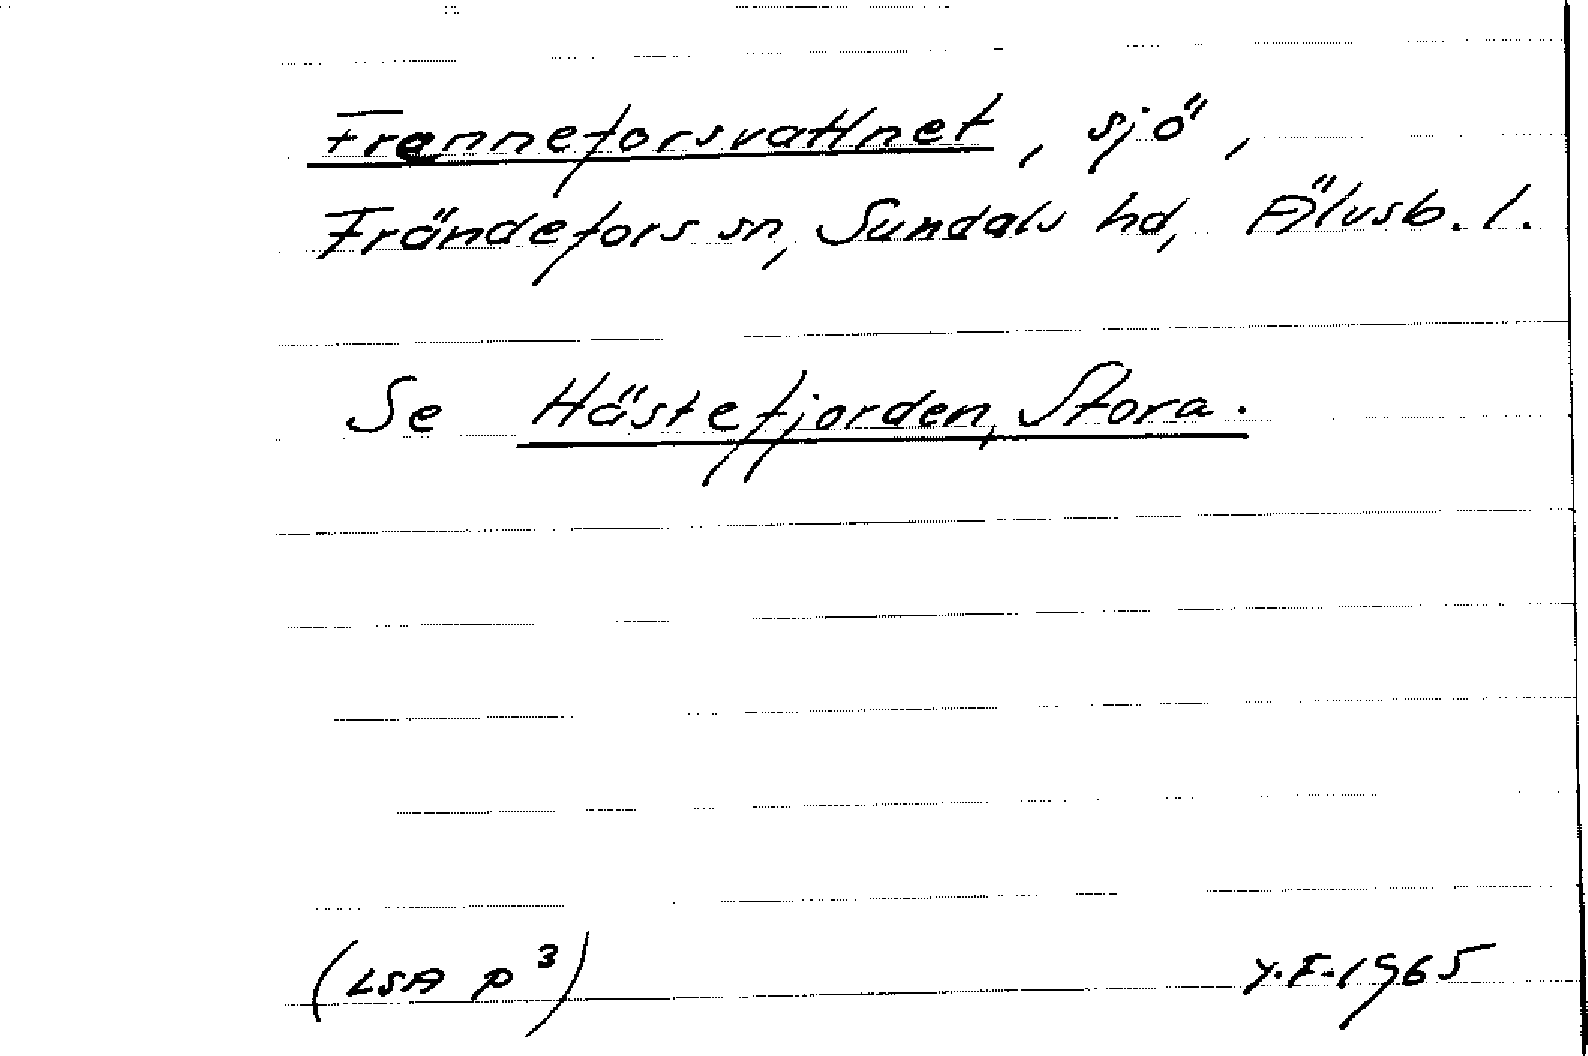 Frenneforsvattnet, sjö,
Frändefors sn, Sundals hd, Älvsb. l.
Se Hästefjorden, Stora.
(LSA p 3) Y.F. 1965